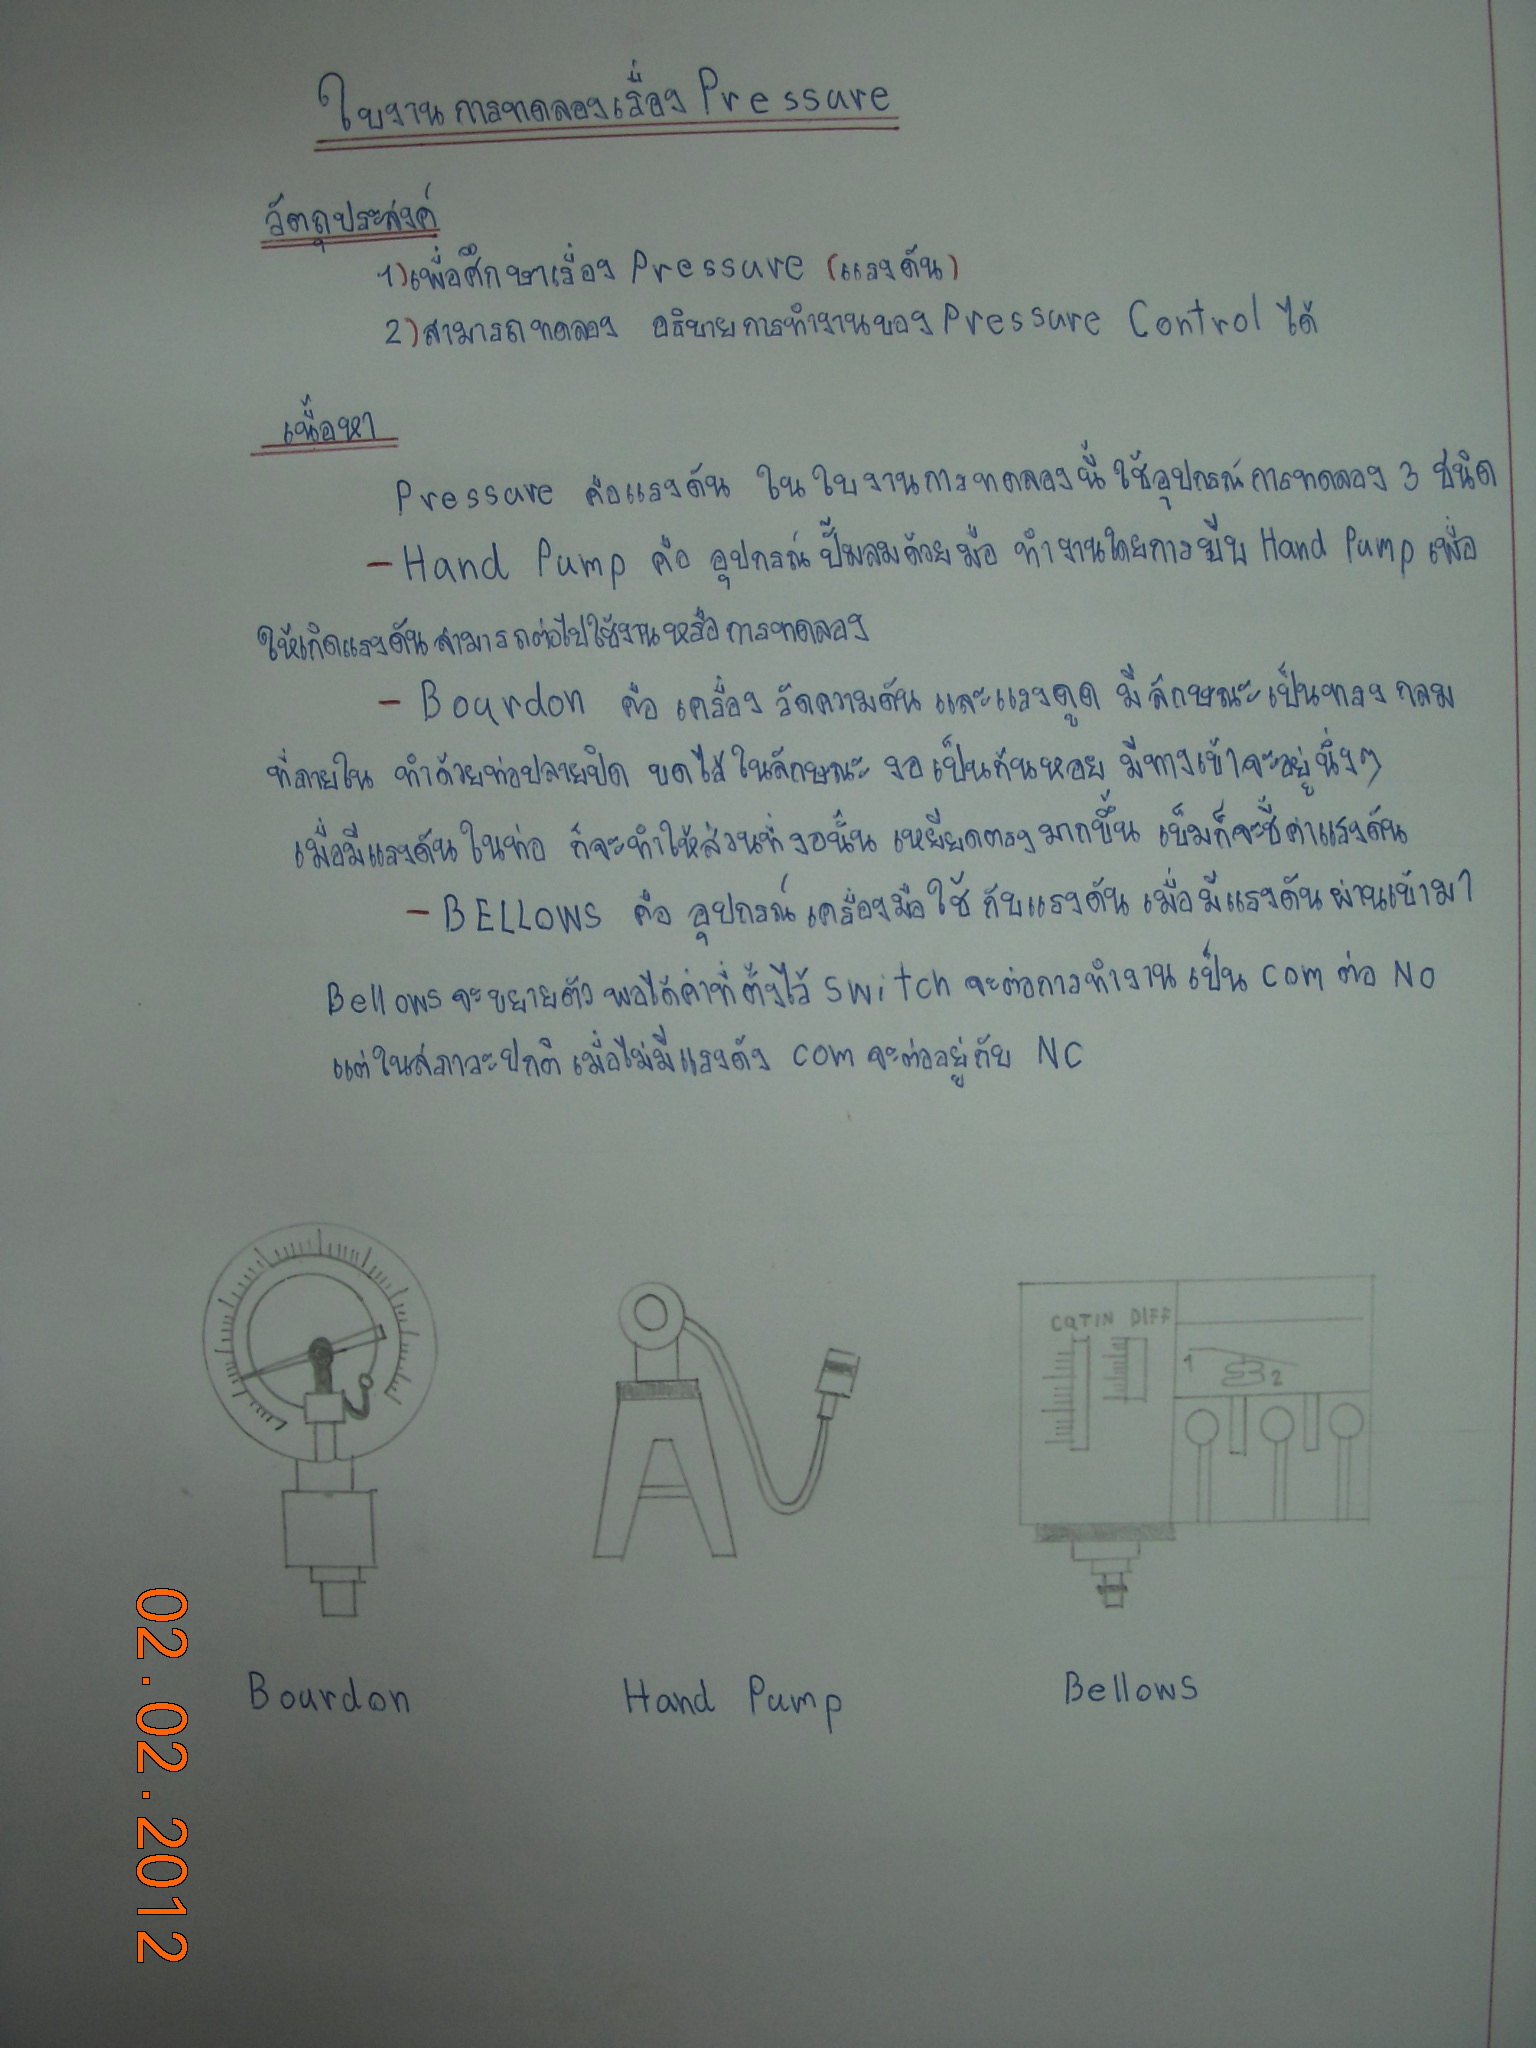 ใบงานการทดลองเรื่อง Pressure
วัตถุประสงค์
1) เพื่อศึกษาเรื่อง Pressure (แรงดัน)
2) สามารถทดลอง อธิบายการทำงานของ Pressure Control ได้
เนื้อหา
Pressure คือแรงดัน ในใบงานการทดลองนี้ ใช้อุปกรณ์การทดลอง 3 ชนิด
- Hand Pump คือ อุปกรณ์ปั๊มลมด้วยมือ ทำงานโดยการบีบ Hand Pump เพื่อ
ให้เกิดแรงดันสามารถต่อไปใช้งานหรือการทดลอง
- Bourdon คือ เครื่องวัดความดันและแรงดูด มีลักษณะเป็นทรงกลม
ที่ภายใน ทำด้วยท่อปลายปิด ขดไว้ในลักษณะ งอเป็นก้นหอย มีทางเข้าจะอยู่นิ่งๆ
เมื่อมีแรงดันในท่อ ก็จะทำให้ส่วนที่งอนั้น เหยียดตรงมากขึ้น เข็มก็จะชี้ค่าแรงดัน
- BELLOWS คือ อุปกรณ์เครื่องมือใช้กับแรงดัน เมื่อมีแรงดันผ่านเข้ามา
Bellows จะขยายตัว พอได้ค่าที่ตั้งไว้ Switch จะต่อการทำงานเป็น com ต่อ NO
แต่ในสภาวะปกติ เมื่อไม่มีแรงดัง com จะต่ออยู่กับ NC
CQTIN DIFF
1
2
Bourdon Hand Pump Bellows
02.02.2012